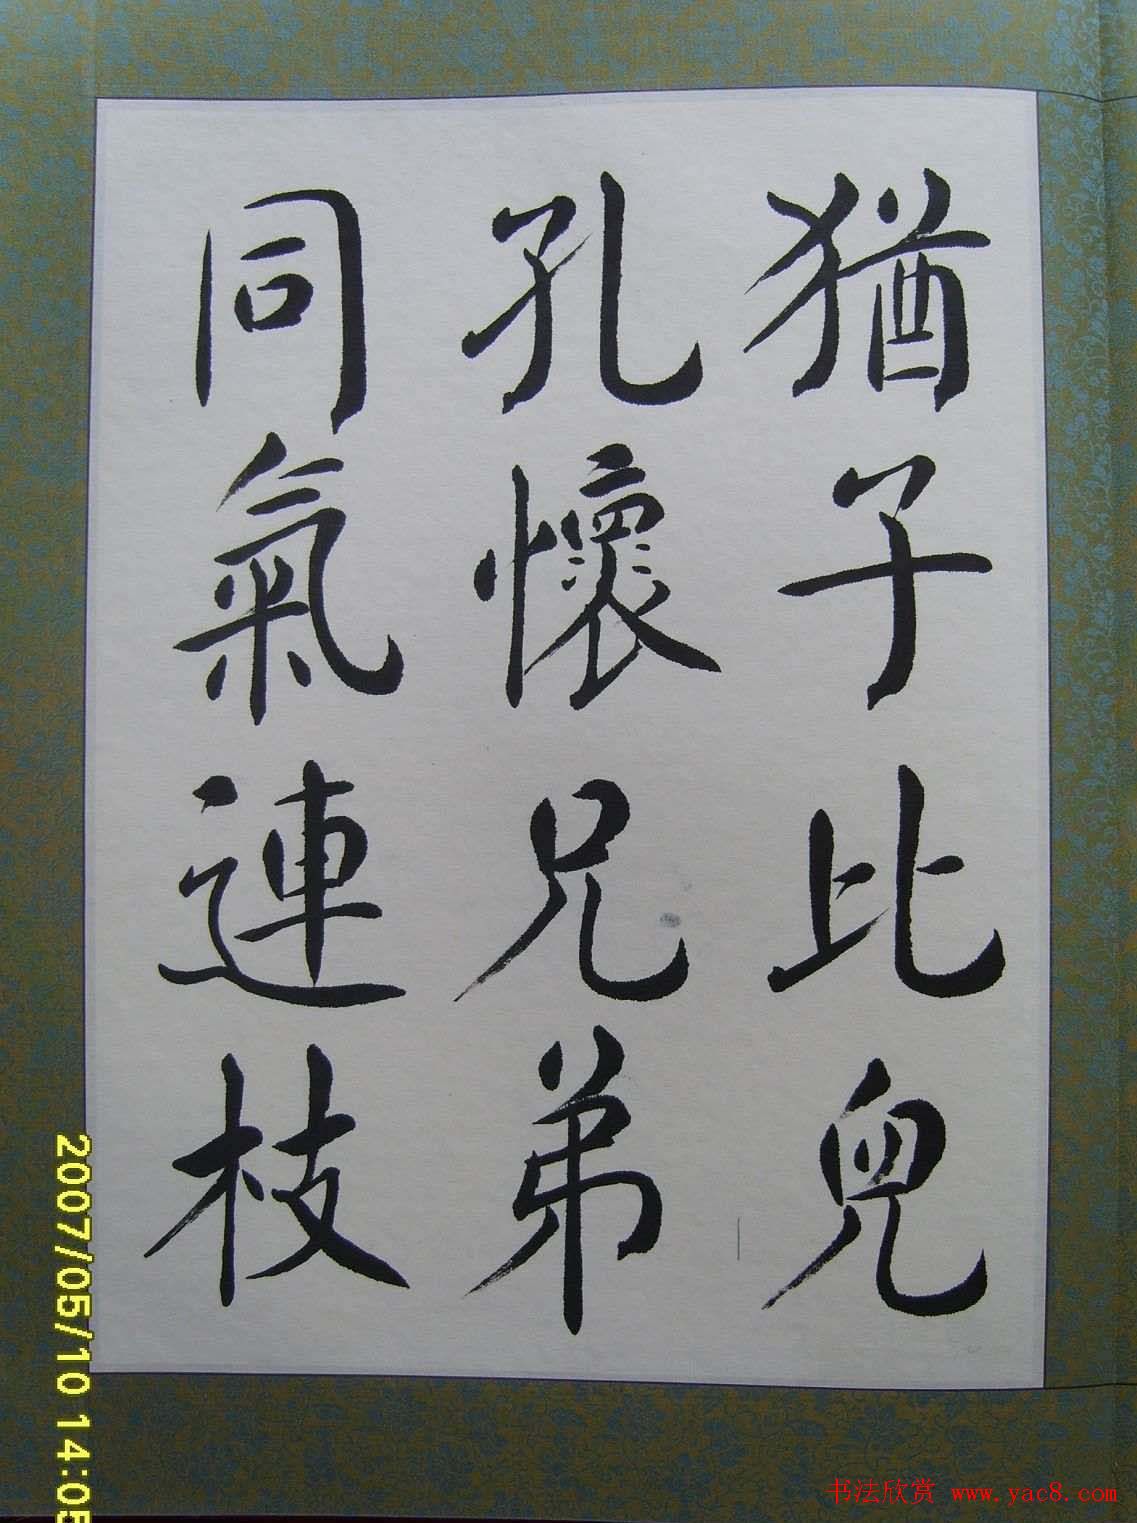 猶子比兒
孔懷兄弟
同氣連枝
2007/05/10 14:05
书法欣赏 www.yac8.com